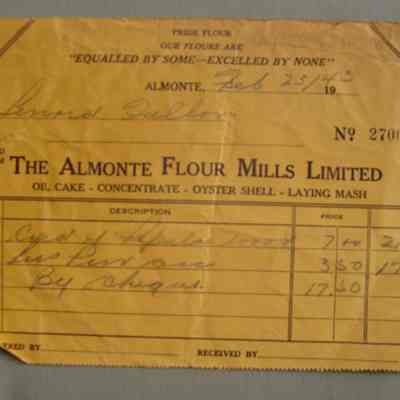 PRIDE FLOUR
OUR FLOURS ARE
"EQUALLED BY SOME—EXCELLED BY NONE"
ALMONTE, Feb 25/43 19
Nº 2700
THE ALMONTE FLOUR MILLS LIMITED
OIL CAKE - CONCENTRATE - OYSTER SHELL - LAYING MASH
DESCRIPTION PRICE
Cord of 7 00 2
3 50 17
By Cheque 17.50
ERED BY RECEIVED BY